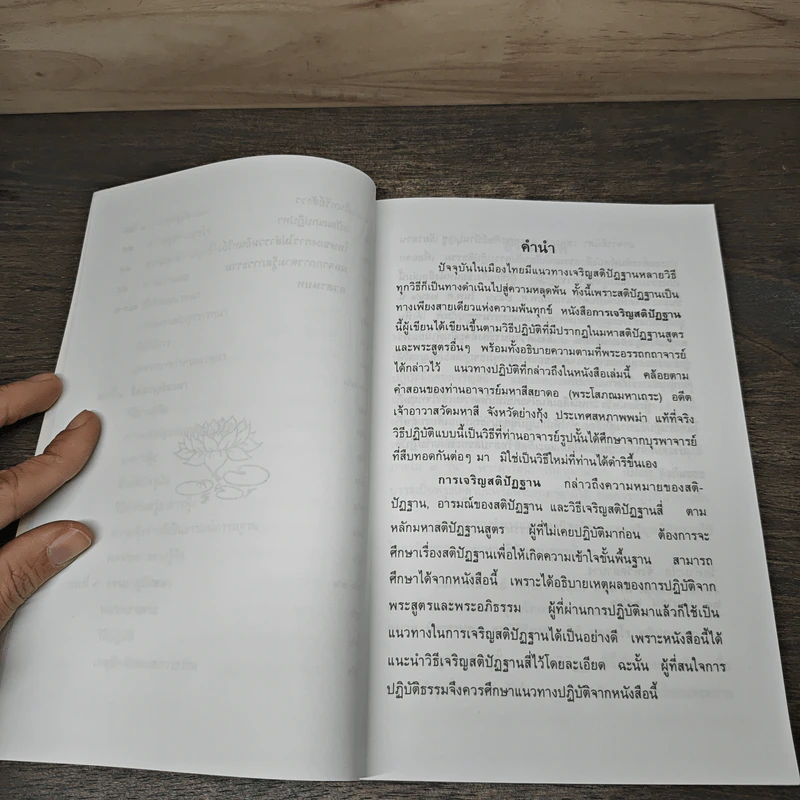 คำนำ
ปัจจุบันในเมืองไทยมีแนวทางเจริญสติปัฏฐานหลายวิธี
ทุกวิธีก็เป็นทางดำเนินไปสู่ความหลุดพ้น ทั้งนี้เพราะสติปัฏฐานเป็น
ทางเพียงสายเดียวแห่งความพ้นทุกข์ หนังสือการเจริญสติปัฏฐาน
นี้ผู้เขียนได้เขียนขึ้นตามวิธีปฏิบัติที่มีปรากฏในมหาสติปัฏฐานสูตร
และพระสูตรอื่นๆ พร้อมทั้งอธิบายความตามที่พระอรรถกถาจารย์
ได้กล่าวไว้ แนวทางปฏิบัติที่กล่าวถึงในหนังสือเล่มนี้ คล้อยตาม
คำสอนของท่านอาจารย์มหาสีสยาดอ (พระโสภณมหาเถระ) อดีต
เจ้าอาวาสวัดมหาสี จังหวัดย่างกุ้ง ประเทศสหภาพพม่า แท้ที่จริง
วิธีปฏิบัติแบบนี้เป็นวิธีที่ท่านอาจารย์รูปนั้นได้ศึกษาจากบุรพาจารย์
ที่สืบทอดกันต่อๆ มา มิใช่เป็นวิธีใหม่ที่ท่านได้ดำริขึ้นเอง
การเจริญสติปัฏฐาน กล่าวถึงความหมายของสติ-
ปัฏฐาน, อารมณ์ของสติปัฏฐาน และวิธีเจริญสติปัฏฐานสี่ ตาม
หลักมหาสติปัฏฐานสูตร ผู้ที่ไม่เคยปฏิบัติมาก่อน ต้องการจะ
ศึกษาเรื่องสติปัฏฐานเพื่อให้เกิดความเข้าใจขั้นพื้นฐาน สามารถ
ศึกษาได้จากหนังสือนี้ เพราะได้อธิบายเหตุผลของการปฏิบัติจาก
พระสูตรและพระอภิธรรม ผู้ที่ผ่านการปฏิบัติมาแล้วก็ใช้เป็น
แนวทางในการเจริญสติปัฏฐานได้เป็นอย่างดี เพราะหนังสือนี้ได้
แนะนำวิธีเจริญสติปัฏฐานสี่ไว้โดยละเอียด ฉะนั้น ผู้ที่สนใจการ
ปฏิบัติธรรมจึงควรศึกษาแนวทางปฏิบัติจากหนังสือนี้